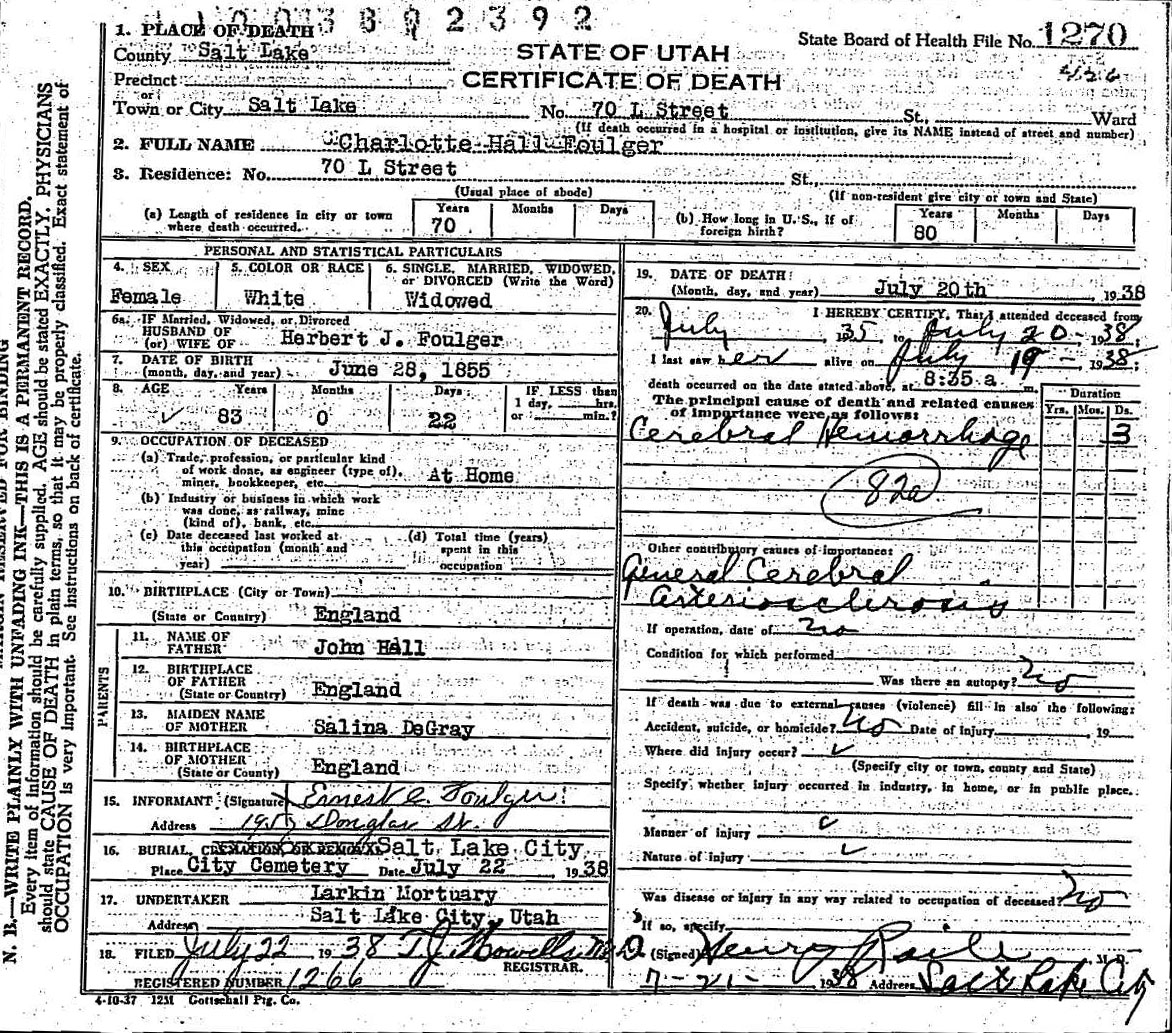 1003802392
1. PLACE OF DEATH
County Salt Lake
STATE OF UTAH
CERTIFICATE OF DEATH
State Board of Health File No. 1270
Precinct
or
Town or City Salt Lake No. 70 L Street St., Ward
(If death occurred in a hospital or institution, give its NAME instead of street and number)
2. FULL NAME Charlotte Hall Foulger
3. Residence: No. 70 L Street St.,
(Usual place of abode) (If non-resident give city or town and State)
(a) Length of residence in city or town where death occurred. Years 70 Months Days
(b) How long in U. S., if of foreign birth? Years 80 Months Days
PERSONAL AND STATISTICAL PARTICULARS
4. SEX Female
5. COLOR OR RACE White
6. SINGLE, MARRIED, WIDOWED, or DIVORCED (Write the Word) Widowed
6a. IF Married, Widowed, or Divorced
HUSBAND OF
(or) WIFE OF Herbert J. Foulger
7. DATE OF BIRTH
(month, day, and year) June 28, 1855
8. AGE Years 83 Months 0 Days 22 IF LESS than 1 day, hrs. or min.?
9. OCCUPATION OF DECEASED
(a) Trade, profession, or particular kind
of work done, as engineer (type of),
miner, bookkeeper, etc. At Home
(b) Industry or business in which work
was done, as railway, mine
(kind of), bank, etc.
(c) Date deceased last worked at
this occupation (month and
year)
(d) Total time (years)
spent in this
occupation
10. BIRTHPLACE (City or Town)
(State or Country) England
PARENTS
11. NAME OF
FATHER John Hall
12. BIRTHPLACE
OF FATHER
(State or Country) England
13. MAIDEN NAME
OF MOTHER Salina DeGray
14. BIRTHPLACE
OF MOTHER
(State or County) England
15. INFORMANT (Signature Ernest C. Foulger
Address Douglas St.
16. BURIAL, CREMATION OR REMOVAL Salt Lake City
Place City Cemetery Date July 22, 1938
17. UNDERTAKER Larkin Mortuary
Address Salt Lake City, Utah
18. FILED July 22 1938 T. J. Howells M.D.
REGISTRAR.
REGISTERED NUMBER 1266
4-10-37 1251 Gottschall Ptg. Co.
19. DATE OF DEATH:
(Month, day, and year) July 20th 1938
20. I HEREBY CERTIFY, That I attended deceased from
July, 1935, to July 20 - 1938;
I last saw her alive on July 19 - 1938;
death occurred on the date stated above, at 8:35 a m.
The principal cause of death and related causes
of importance were as follows:
Duration
Yrs. Mos. Ds.
Cerebral Hemorrhage 3
82a
Other contributory causes of importance:
General Cerebral
Arteriosclerosis
If operation, date of no
Condition for which performed
Was there an autopsy? no
If death was due to external causes (violence) fill in also the following:
Accident, suicide, or homicide? No Date of injury, 19
Where did injury occur?
(Specify city or town, county and State)
Specify whether injury occurred in industry, in home, or in public place.
Manner of injury
Nature of injury
Was disease or injury in any way related to occupation of deceased? No
If so, specify
(Signed) Henry Raile M. D.
7-21- 1938 Address Salt Lake City
N. B.—WRITE PLAINLY WITH UNFADING INK—THIS IS A PERMANENT RECORD.
Every item of information should be carefully supplied. AGE should be stated EXACTLY. PHYSICIANS
should state CAUSE OF DEATH in plain terms, so that it may be properly classified. Exact statement of
OCCUPATION is very important. See instructions on back of certificate.